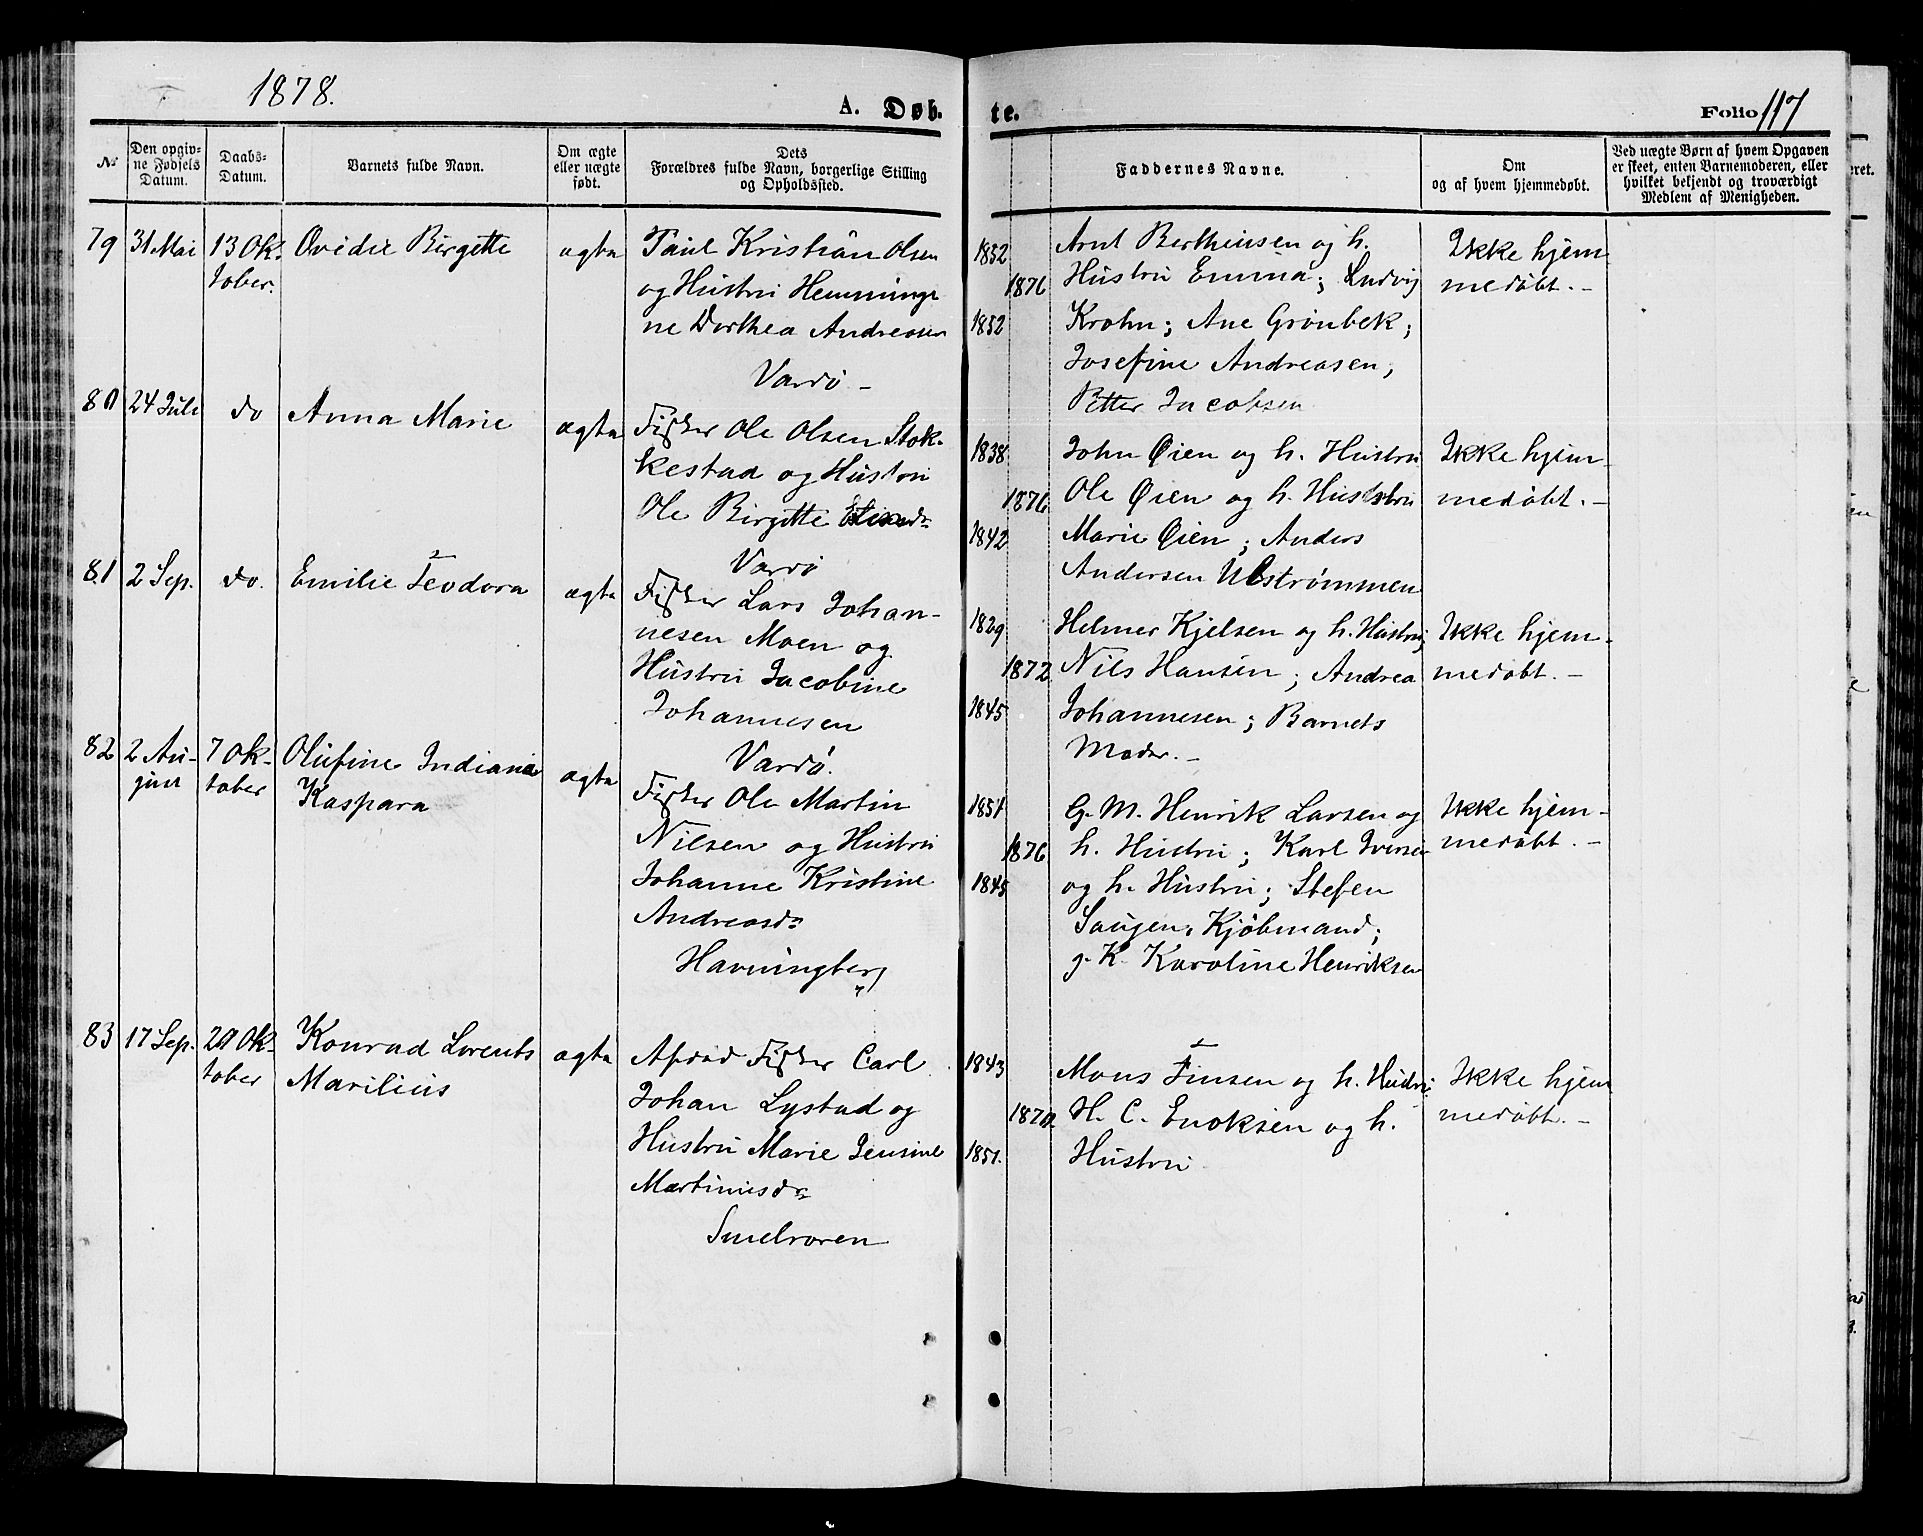 1878.
A. Døb.
№
Den opgiv-
ne Fødsels
Datum.
Daabs-
Datum.
Barnets fulde Navn.
Om ægte
eller uægte
født.
Dets
Forældres fulde Navn, borgerlige Stilling
og Opholdssted.
79 31 Mai 13 Ok-
tober.
Ovidie Birgitte
ægte
Paul Kristian Olsen
og Hustru Henninge
ne Dorthea Andreasen
Vardö -
80 24 Juli do Anna Marie ægte
Fisker Ole Olsen Stok-
kestad og Hustru
Ole Birgitte
Vardö
81 2 Sep. do. Emilie Teodora ægte
Fisker Lars Johan-
nesen Moen og
Hustru Jacobine
Johannesen
Vardö.
82 2 Au-
gust
7 Ok-
tober
Olufine Indiana
Kaspara
ægte
Fisker Ole Martin
Nilsen og Hustru
Johanne Kristine
Andreasd:
Havningberg
83 17 Sep. 20 Ok-
tober
Konrad Lorents
Marilius
ægte
Afdød Fisker Carl
Johan Lystad og
Hustru Marie Jensine
Martinusd:
Smelroren
te.
Folio 117
Faddernes Navne.
Om
og af hvem hjemmedøbt.
Ved uægte Børn af hvem Opgaven
er skeet, enten Barnemoderen, eller
hvilket bekjendt og troværdigt
Medlem af Menigheden.
1852
1876
1852
Arnt Berthinsen og h.
Hustru Emma; Ludvig
Krohn; Ane Grönbek;
Josefine Andreasen;
Petter Jacobsen
Ikke hjem
medöbt. -
1838
1876
1842
John Öien og h. Hustru
Ole Öien og h. Hustru
Marie Öien; Anders
Andersen Ulströmmen
Ikke hjem-
medöbt. -
1829
1872
1845
Helmer Kjelsen og h. Hustru;
Nils Hansen; Andrea
Johannesen; Barnets
Moder. -
Ikke hjem-
medöbt. -
1851
1876
1845
G. M. Henrik Larsen og
h. Hustru; Karl Iversen
og h. Hustru; Stefen
Saugen, Kjöbmand;
g. K. Karoline Henriksen
Ikke hjem-
medöbt. -
1843
1870.
1851.
Mons Finsen og h. Hustru;
H. C. Enoksen og h.
Hustru
Ikke hjem
medöbt. -